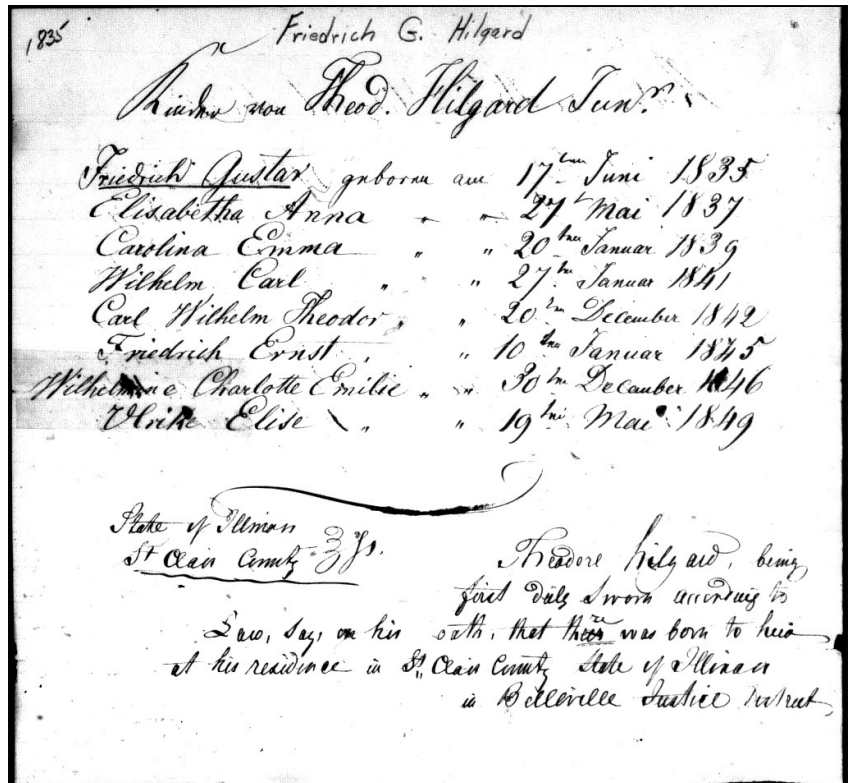 1835
Friedrich G. Hilgard
Kinder von Theod. Hilgard Junr.
Friedrich Gustav geboren am 17ten Juni 1835
Elisabetha Anna " " 27t Mai 1837
Carolina Emma " " 20ten Januar 1839
Wilhelm Carl " " 27ten Januar 1841
Carl Wilhelm Theodor " " 20ten December 1842
Friedrich Ernst " " 10ten Januar 1845
Wilhelmine Charlotte Emilie " " 30ten December 1846
Ulrike Elise " " 19ten Mai 1849
State of Illinois
St Clair County } ss.
Theodore Hilgard, being
first duly sworn according to
Law, says on his oath, that there was born to him
at his residence in St. Clair County State of Illinois
in Belleville Justice District